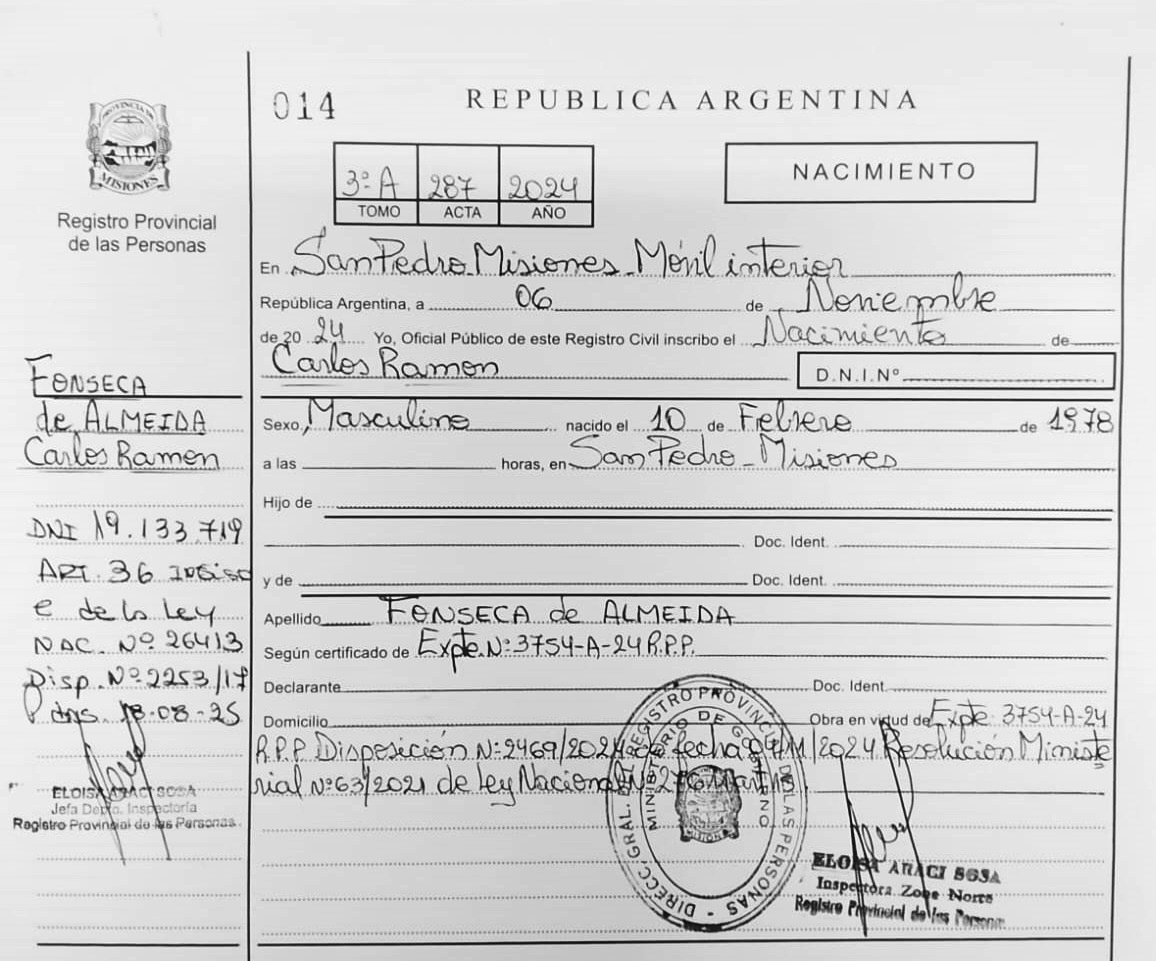 PROVINCIA DE
MISIONES
Registro Provincial
de las Personas
FONSECA
de ALMEIDA
Carlos Ramon
DNI 19.133.719
ART. 36 Inciso
e de la Ley
NAC. Nº 26413
Disp. Nº 2253/17
Pdas. 18-08-25
ELOISA ARACI SOSA
Jefa Depto. Inspectoria
Registro Provincial de las Personas
014
REPUBLICA ARGENTINA
3º A 287 2024
TOMO ACTA AÑO
NACIMIENTO
En San Pedro Misiones Móvil interior
República Argentina, a 06 de Noviembre
de 20 24 Yo, Oficial Público de este Registro Civil inscribo el Nacimiento de
Carlos Ramon D.N.I.Nº
Sexo Masculino nacido el 10 de Febrero de 1978
a las horas, en San Pedro - Misiones
Hijo de
Doc. Ident.
y de Doc. Ident.
Apellido FONSECA de ALMEIDA
Según certificado de Expte. Nº 3754-A-24 R.P.P.
Declarante Doc. Ident.
Domicilio Obra en virtud de Expte 3754-A-24
R.P.P. Disposición Nº 2469/2024 de fecha 04/11/2024 Resolución Ministe
rial Nº 63/2021 de Ley Nacional
DIRECC. GRAL. REGISTRO PROVINCIAL DE LAS PERSONAS
MINISTERIO DE GOBIERNO
MISIONES
ELOISA ARACI SOSA
Inspectora Zona Norte
Registro Provincial de las Personas